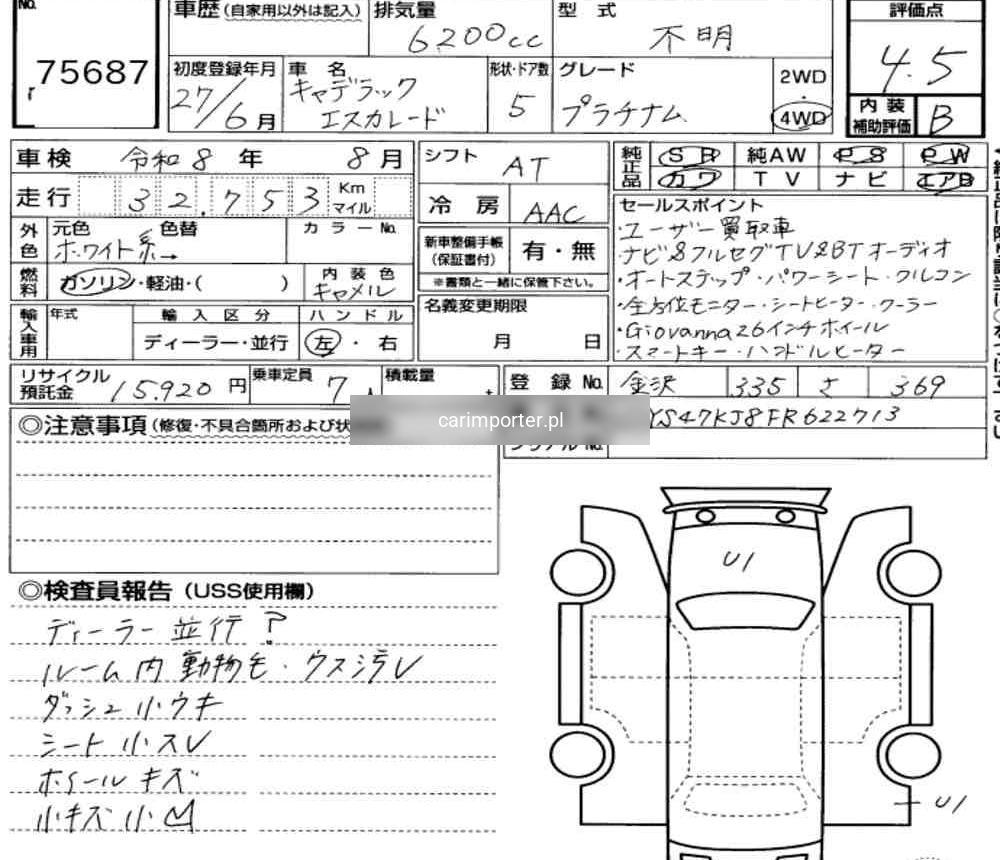 No.
75687
車歴(自家用以外は記入)
排気量
6200cc
型 式
不明
評価点
4.5
初度登録年月
27/6月
車 名
キャデラック
エスカレード
形状・ドア数
5
グレード
プラチナム
2WD
・
4WD
内装
補助評価
B
車検 令和8年 8月
走行 32.753 Km
マイル
シフト AT
冷房 AAC
純正品
SR 純AW PS PW
カワ TV ナビ エアB
外色
元色 色替
ホワイト系→
カラーNo.
燃料
ガソリン・軽油・( )
内装色
キャメル
新車整備手帳
(保証書付)
有・無
※書類と一緒に保管下さい。
セールスポイント
・ユーザー買取車
・ナビ&フルセグTV&BTオーディオ
・オートステップ・パワーシート・クルコン
・全方位モニター・シートヒーター・クーラー
・Giovanna26インチホイール
・スマートキー・ハンドルヒーター
輸入車用
年式
輸入区分
ディーラー・並行
ハンドル
左・右
名義変更期限
月 日
リサイクル
預託金
15.920円
乗車定員
7人
積載量
登録No. 金沢 335 さ 369
YS47KJ8FR622713
carimporter.pl
◎注意事項(修復・不具合箇所および状
シリアルNo.
◎検査員報告(USS使用欄)
ディーラー並行?
ルーム内 動物毛・ウスヨゴレ
ダッシュ小ウキ
シート小スレ
ホイールキズ
小キズ小凹
U1
U1